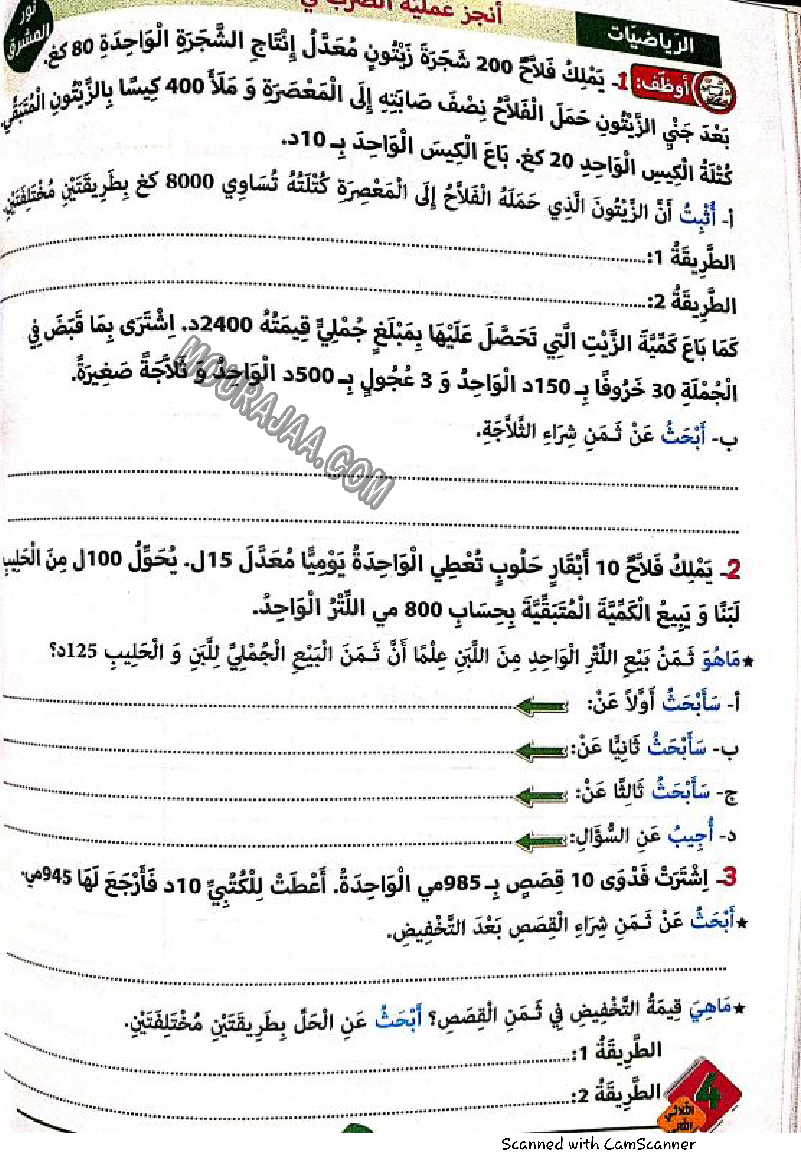 نور المشرق
أنجز عملية الضرب في
الرياضيات
أوظف: 1ـ يَمْلِكُ فَلاَّحٌ 200 شَجَرَةَ زَيْتُونٍ مُعَدَّلُ إِنْتَاجِ الشَّجَرَةِ الْوَاحِدَةِ 80 كغ.
بَعْدَ جَنْيِ الزَّيْتُونِ حَمَلَ الْفَلاَّحُ نِصْفَ صَابَتِهِ إِلَى الْمَعْصَرَةِ وَ مَلَأَ 400 كِيسًا بِالزَّيْتُونِ الْمُتَبَقِّي
كُتْلَةُ الْكِيسِ الْوَاحِدِ 20 كغ. بَاعَ الْكِيسَ الْوَاحِدَ بِـ 10د.
أ- أُثْبِتُ أَنَّ الزَّيْتُونَ الَّذِي حَمَلَهُ الْفَلاَّحُ إِلَى الْمَعْصَرَةِ كُتْلَتُهُ تُسَاوِي 8000 كغ بِطَرِيقَتَيْنِ مُخْتَلِفَتَيْنِ.
الطَّرِيقَةُ 1:
الطَّرِيقَةُ 2:
كَمَا بَاعَ كَمِّيَّةَ الزَّيْتِ الَّتِي تَحَصَّلَ عَلَيْهَا بِمَبْلَغٍ جُمْلِيٍّ قِيمَتُهُ 2400د. اِشْتَرَى بِمَا قَبَضَ فِي
الْجُمْلَةِ 30 خَرُوفًا بِـ 150د الْوَاحِدُ وَ 3 عُجُولٍ بِـ 500د الْوَاحِدُ وَ ثَلاَّجَةً صَغِيرَةً.
MOURAJAA.COM
ب- أَبْحَثُ عَنْ ثَـمَنِ شِرَاءِ الثَّلاَّجَةِ.
2ـ يَمْلِكُ فَلاَّحٌ 10 أَبْقَارٍ حَلُوبٍ تُعْطِي الْوَاحِدَةُ يَوْمِيًّا مُعَدَّلَ 15ل. يُحَوِّلُ 100ل مِنَ الْحَلِيبِ
لَبَنًا وَ يَبِيعُ الْكَمِّيَّةَ الْمُتَبَقِّيَّةَ بِحِسَابِ 800 مي اللِّتْرُ الْوَاحِدُ.
★ مَاهُوَ ثَـمَنُ بَيْعِ اللِّتْرِ الْوَاحِدِ مِنَ اللَّبَنِ عِلْمًا أَنَّ ثَـمَنَ الْبَيْعِ الْجُمْلِيَّ لِلَّبَنِ وَ الْحَلِيبِ 125د؟
أ- سَأَبْحَثُ أَوَّلاً عَنْ:
ب- سَأَبْحَثُ ثَانِيًّا عَنْ:
ج- سَأَبْحَثُ ثَالِثًا عَنْ:
د- أُجِيبُ عَنِ السُّؤَالِ:
3ـ اِشْتَرَتْ فَدْوَى 10 قِصَصٍ بِـ 985مي الْوَاحِدَةُ. أَعْطَتْ لِلْكُتْبِيِّ 10د فَأَرْجَعَ لَهَا 945مي.
★ أَبْحَثُ عَنْ ثَـمَنِ شِرَاءِ الْقِصَصِ بَعْدَ التَّخْفِيضِ.
★ مَاهِيَ قِيمَةُ التَّخْفِيضِ فِي ثَـمَنِ الْقِصَصِ؟ أَبْحَثُ عَنِ الْحَلِّ بِطَرِيقَتَيْنِ مُخْتَلِفَتَيْنِ.
الطَّرِيقَةُ 1:
الطَّرِيقَةُ 2:
4
Scanned with CamScanner